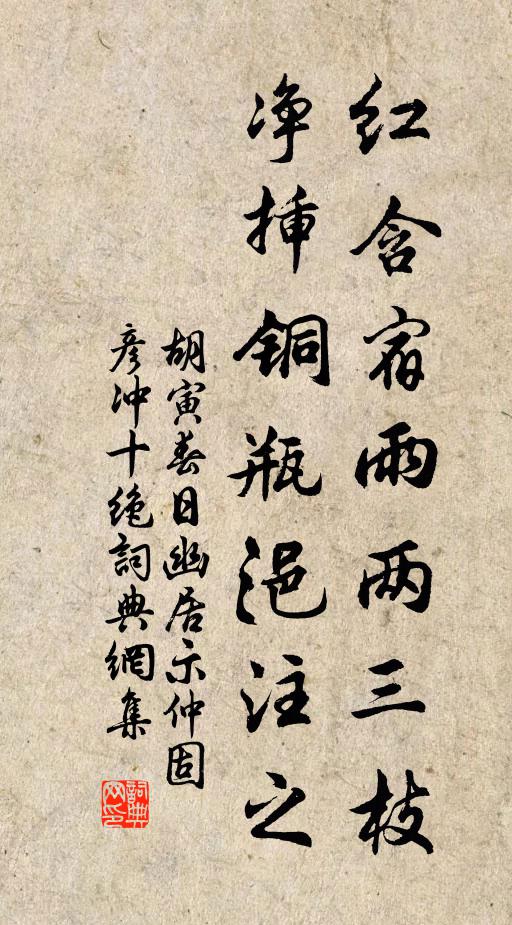 红含宿雨两三枝
净插铜瓶浥注之
胡寅春日幽居示仲固
彦冲十绝詞典網集
詞典网印